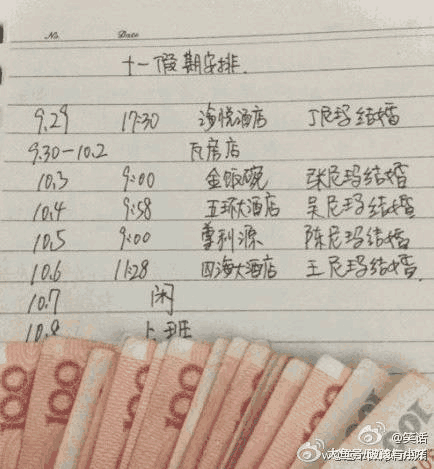 No. Date
十一假期安排.
9.29 17:30 海悦酒店 丁尼玛结婚
9.30-10.2 瓦房店
10.3 9:00 金饭碗 张尼玛结婚
10.4 9:58 五环大酒店 吴尼玛结婚
10.5 9:00 喜利源 陈尼玛结婚
10.6 11:28 四海大酒店 王尼玛结婚.
10.7 闲
10.8 上班
100 100 100 100
@笑话